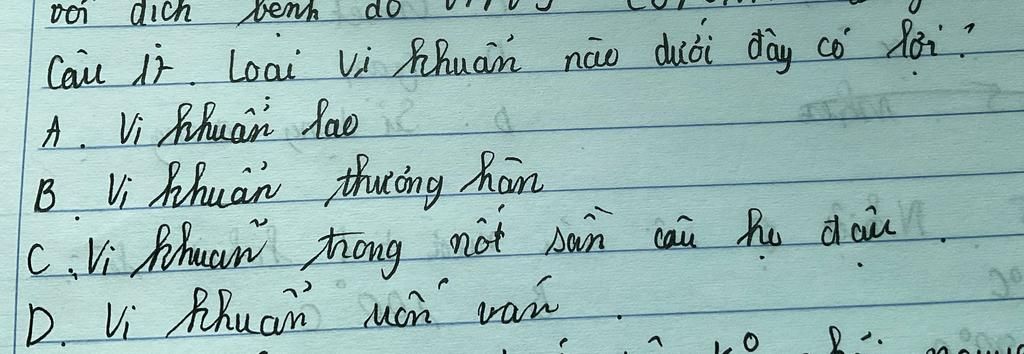 với dịch bệnh do
Câu 17. Loại vi khuẩn nào dưới đây có lợi?
A. Vi khuẩn lao
B. Vi khuẩn thương hàn
C. Vi khuẩn trong nốt sần cây họ đậu.
D. Vi khuẩn uốn ván.